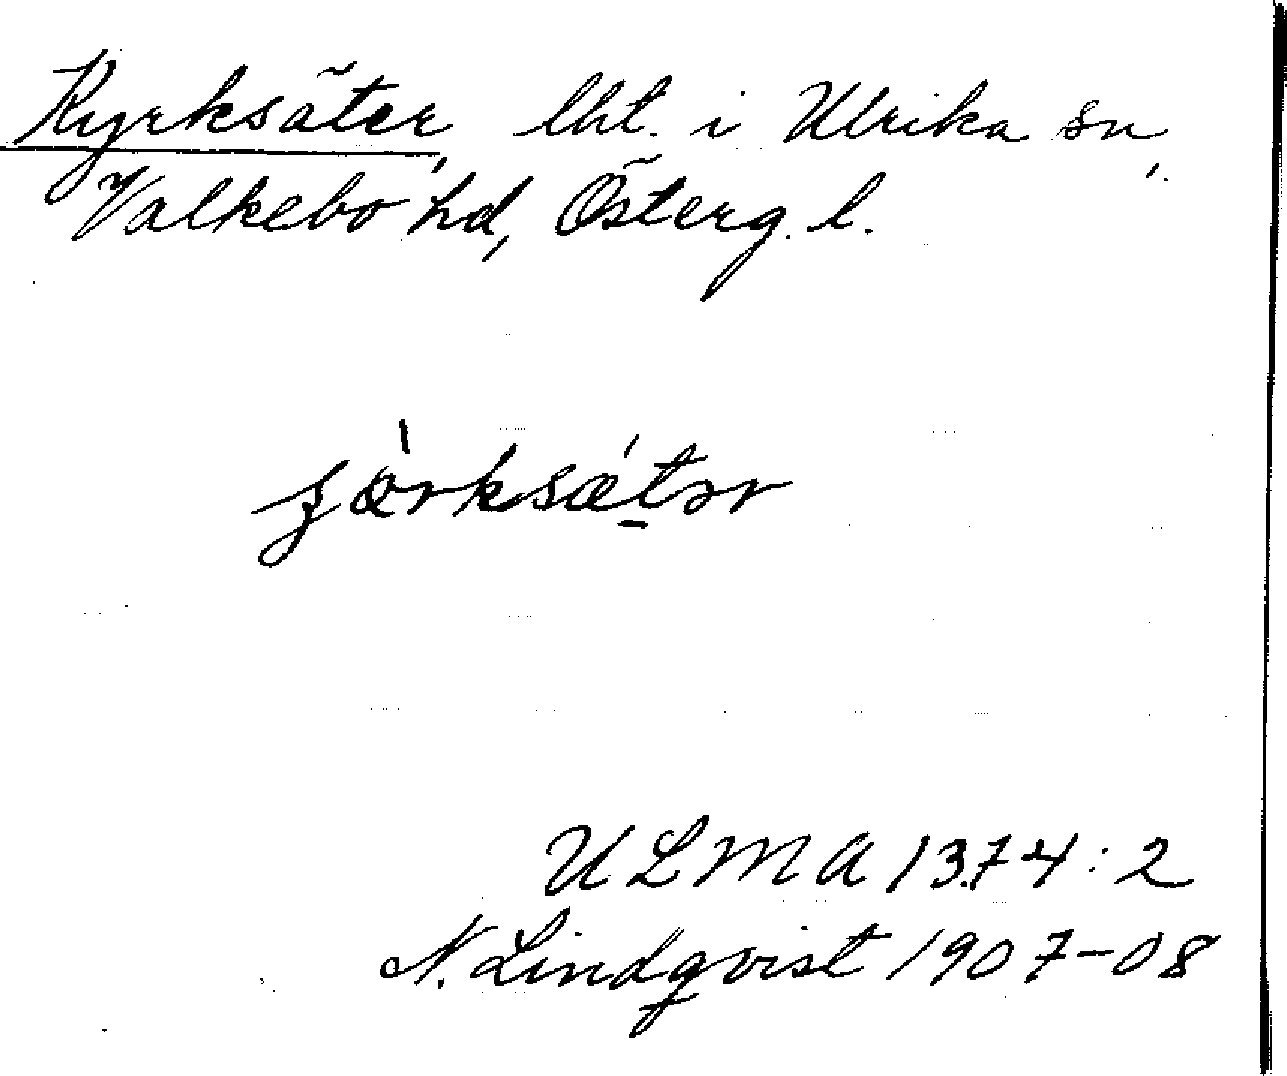 Kyrksäter, lht. i Ulrika sn,
Valkebo hd, Österg. l.
ULMA 1374:2
N. Lindqvist 1907-08